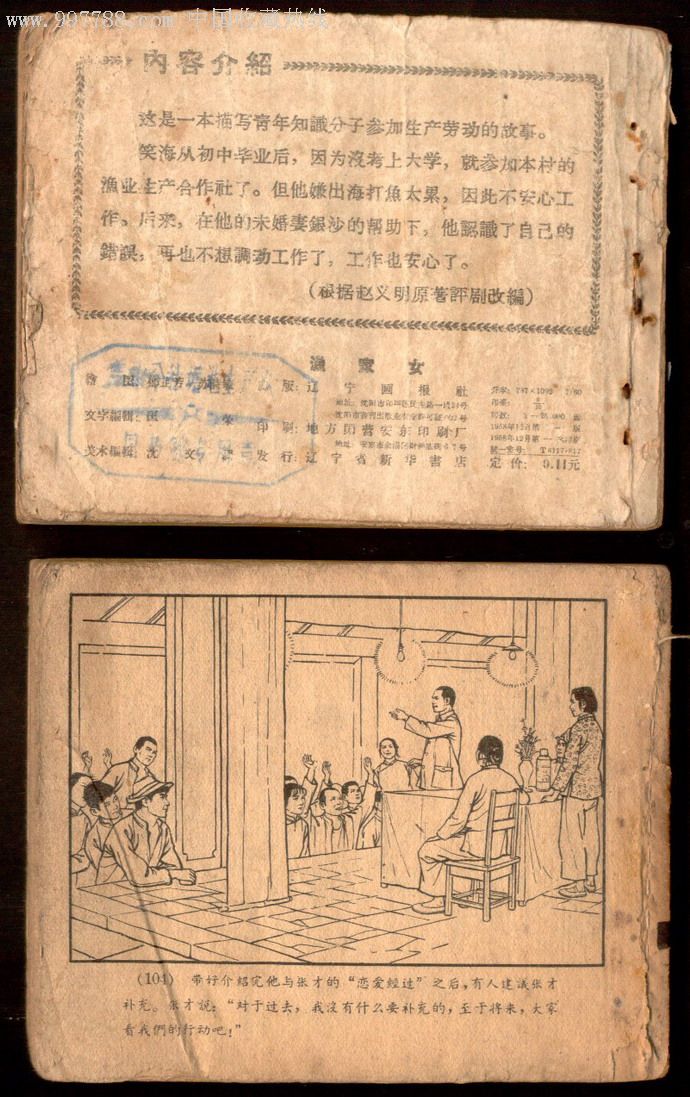 www.997788.com 中国收藏热线
内容介紹
这是一本描写青年知識分子参加生产劳动的故事。
笑海从初中毕业后，因为沒考上大学，就参加本村的
漁业生产合作社了。但他嫌出海打魚太累，因此不安心工
作。后来，在他的未婚妻銀沙的帮助下，他認識了自己的
錯誤，再也不想調动工作了，工作也安心了。
（根据赵义明原著評剧改編）
漁家女
繪图：
出版：辽宁画报社
开本：787×1092
文字編輯：
印刷：地方国营安东印刷厂
1958年12月第一版
1958年12月第一次印刷
統一書号：T8117·817
美术編輯：沈文
发行：辽宁省新华書店
定价：0.11元
(104) 带好介紹完他与张才的“恋爱經过”之后，有人建議张才
补充。张才說：“对于过去，我沒有什么要补充的，至于将来，大家
看我們的行动吧！”